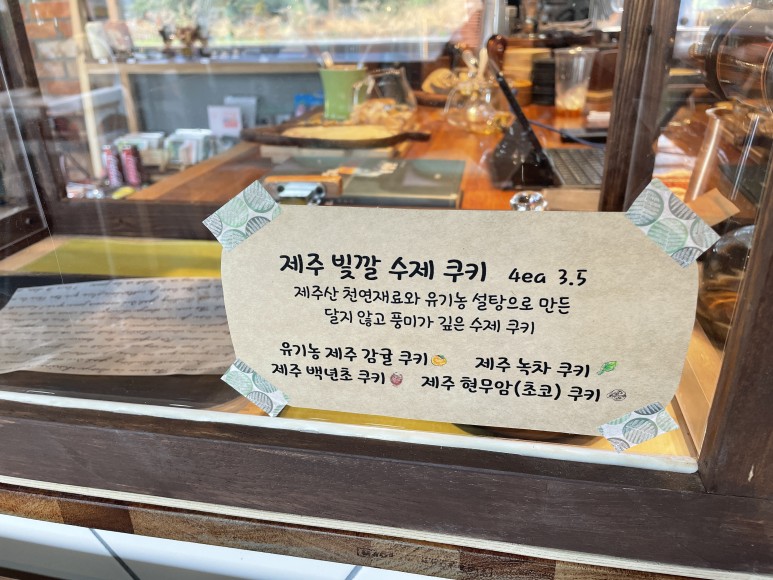 제주 빛깔 수제 쿠키 4ea 3.5
제주산 천연재료와 유기농 설탕으로 만든
달지 않고 풍미가 깊은 수제 쿠키
유기농 제주 감귤 쿠키 제주 녹차 쿠키
제주 백년초 쿠키 제주 현무암(초코) 쿠키